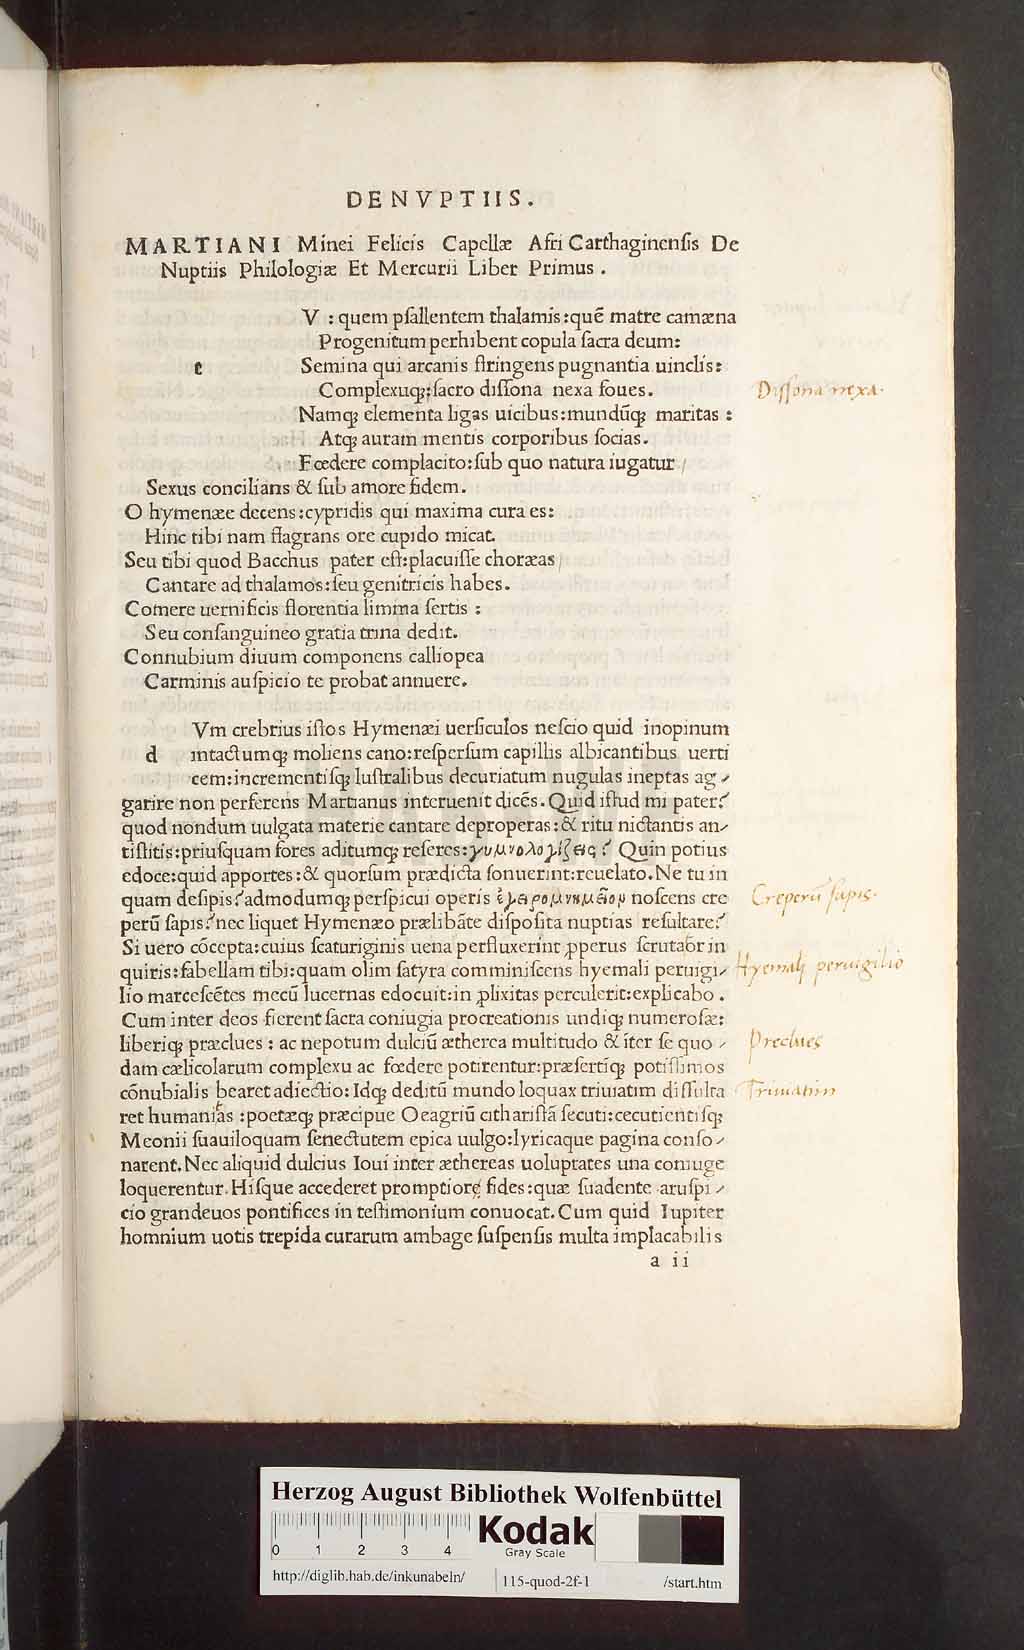 DE NVPTIIS.
MARTIANI Minei Felicis Capellæ Afri Carthaginenſis De
Nuptiis Philologiæ Et Mercurii Liber Primus .
V : quem pſallentem thalamis:quē matre camæna
Progenitum perhibent copula ſacra deum:
e Semina qui arcanis ſtringens pugnantia uinclis:
Complexuq;:ſacro diſſona nexa foues.
Diſſona nexa.
Namq; elementa ligas uicibus:mundūq; maritas :
Atq; auram mentis corporibus ſocias.
Fœdere complacito:ſub quo natura iugatur/
Sexus concilians & ſub amore fidem.
O hymenæe decens:cypridis qui maxima cura es:
Hinc tibi nam flagrans ore cupido micat.
Seu tibi quod Bacchus pater eſt:placuiſſe choræas/
Cantare ad thalamos:ſeu genitricis habes.
Comere uernificis florentia limina ſertis :
Seu conſanguineo gratia trina dedit.
Connubium diuum componens calliopea
Carminis auſpicio te probat annuere.
Vm crebrius iſtos Hymenæi uerſiculos neſcio quid inopinum
d intactumq; moliens cano:reſperſum capillis albicantibus uerti
cem:incrementiſq; luſtralibus decuriatum nugulas ineptas ag-
garire non perferens Martianus interuenit dicēs. Quid iſtud mi pater?
quod nondum uulgata materie cantare deproperas:& ritu nictantis an-
tiſtitis:priuſquam fores aditumq; reſeres:γυμνολογίζεις? Quin potius
edoce:quid apportes:& quorſum prædicta ſonuerint:reuelato. Ne tu in
quam deſipis?admodumq; perſpicui operis noſcens cre
Creperū ſapis.
perū ſapis?nec liquet Hymenæo prælibāte diſpoſita nuptias reſultare?
Si uero cōcepta:cuius ſcaturiginis uena perfluxerint ꝓperus ſcrutator in
quiris:fabellam tibi:quam olim ſatyra comminiſcens hyemali peruigi-
Hyemali peruigilio
lio marceſcētes mecū lucernas edocuit:in ꝓlixitas perculerit:explicabo.
Cum inter deos fierent ſacra coniugia procreationis undiq; numeroſæ:
liberiq; præclues : ac nepotum dulciū ætherea multitudo & iter ſe quo -
Preclues
dam cælicolarum complexu ac fœdere potirentur:præſertiq; potiſſimos
cōnubialis bearet adiectio: Idq; deditū mundo loquax triuiatim diſſulta
Triuiatim
ret humanitas :poetæq; præcipue Oeagriū cithariſtā ſecuti:cecutientiſq;
Meonii ſuauiloquam ſenectutem epica uulgo:lyricaque pagina conſo-
narent. Nec aliquid dulcius Ioui inter æthereas uoluptates una coniuge
loquerentur. Hiſque accederet promptiore fides:quæ ſuadente aruſpi -
cio grandeuos pontifices in teſtimonium conuocat. Cum quid Iupiter
homnium uotis trepida curarum ambage ſuſpenſis multa implacabilis
a ii
Herzog August Bibliothek Wolfenbüttel
0 1 2 3 4
Kodak
Gray Scale
http://diglib.hab.de/inkunabeln/ 115-quod-2f-1 /start.htm